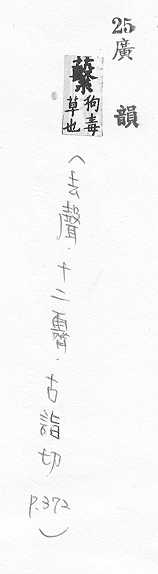 25 廣韻
蘻狗毒草也
(去聲.十二霽.古詣切 P.372)